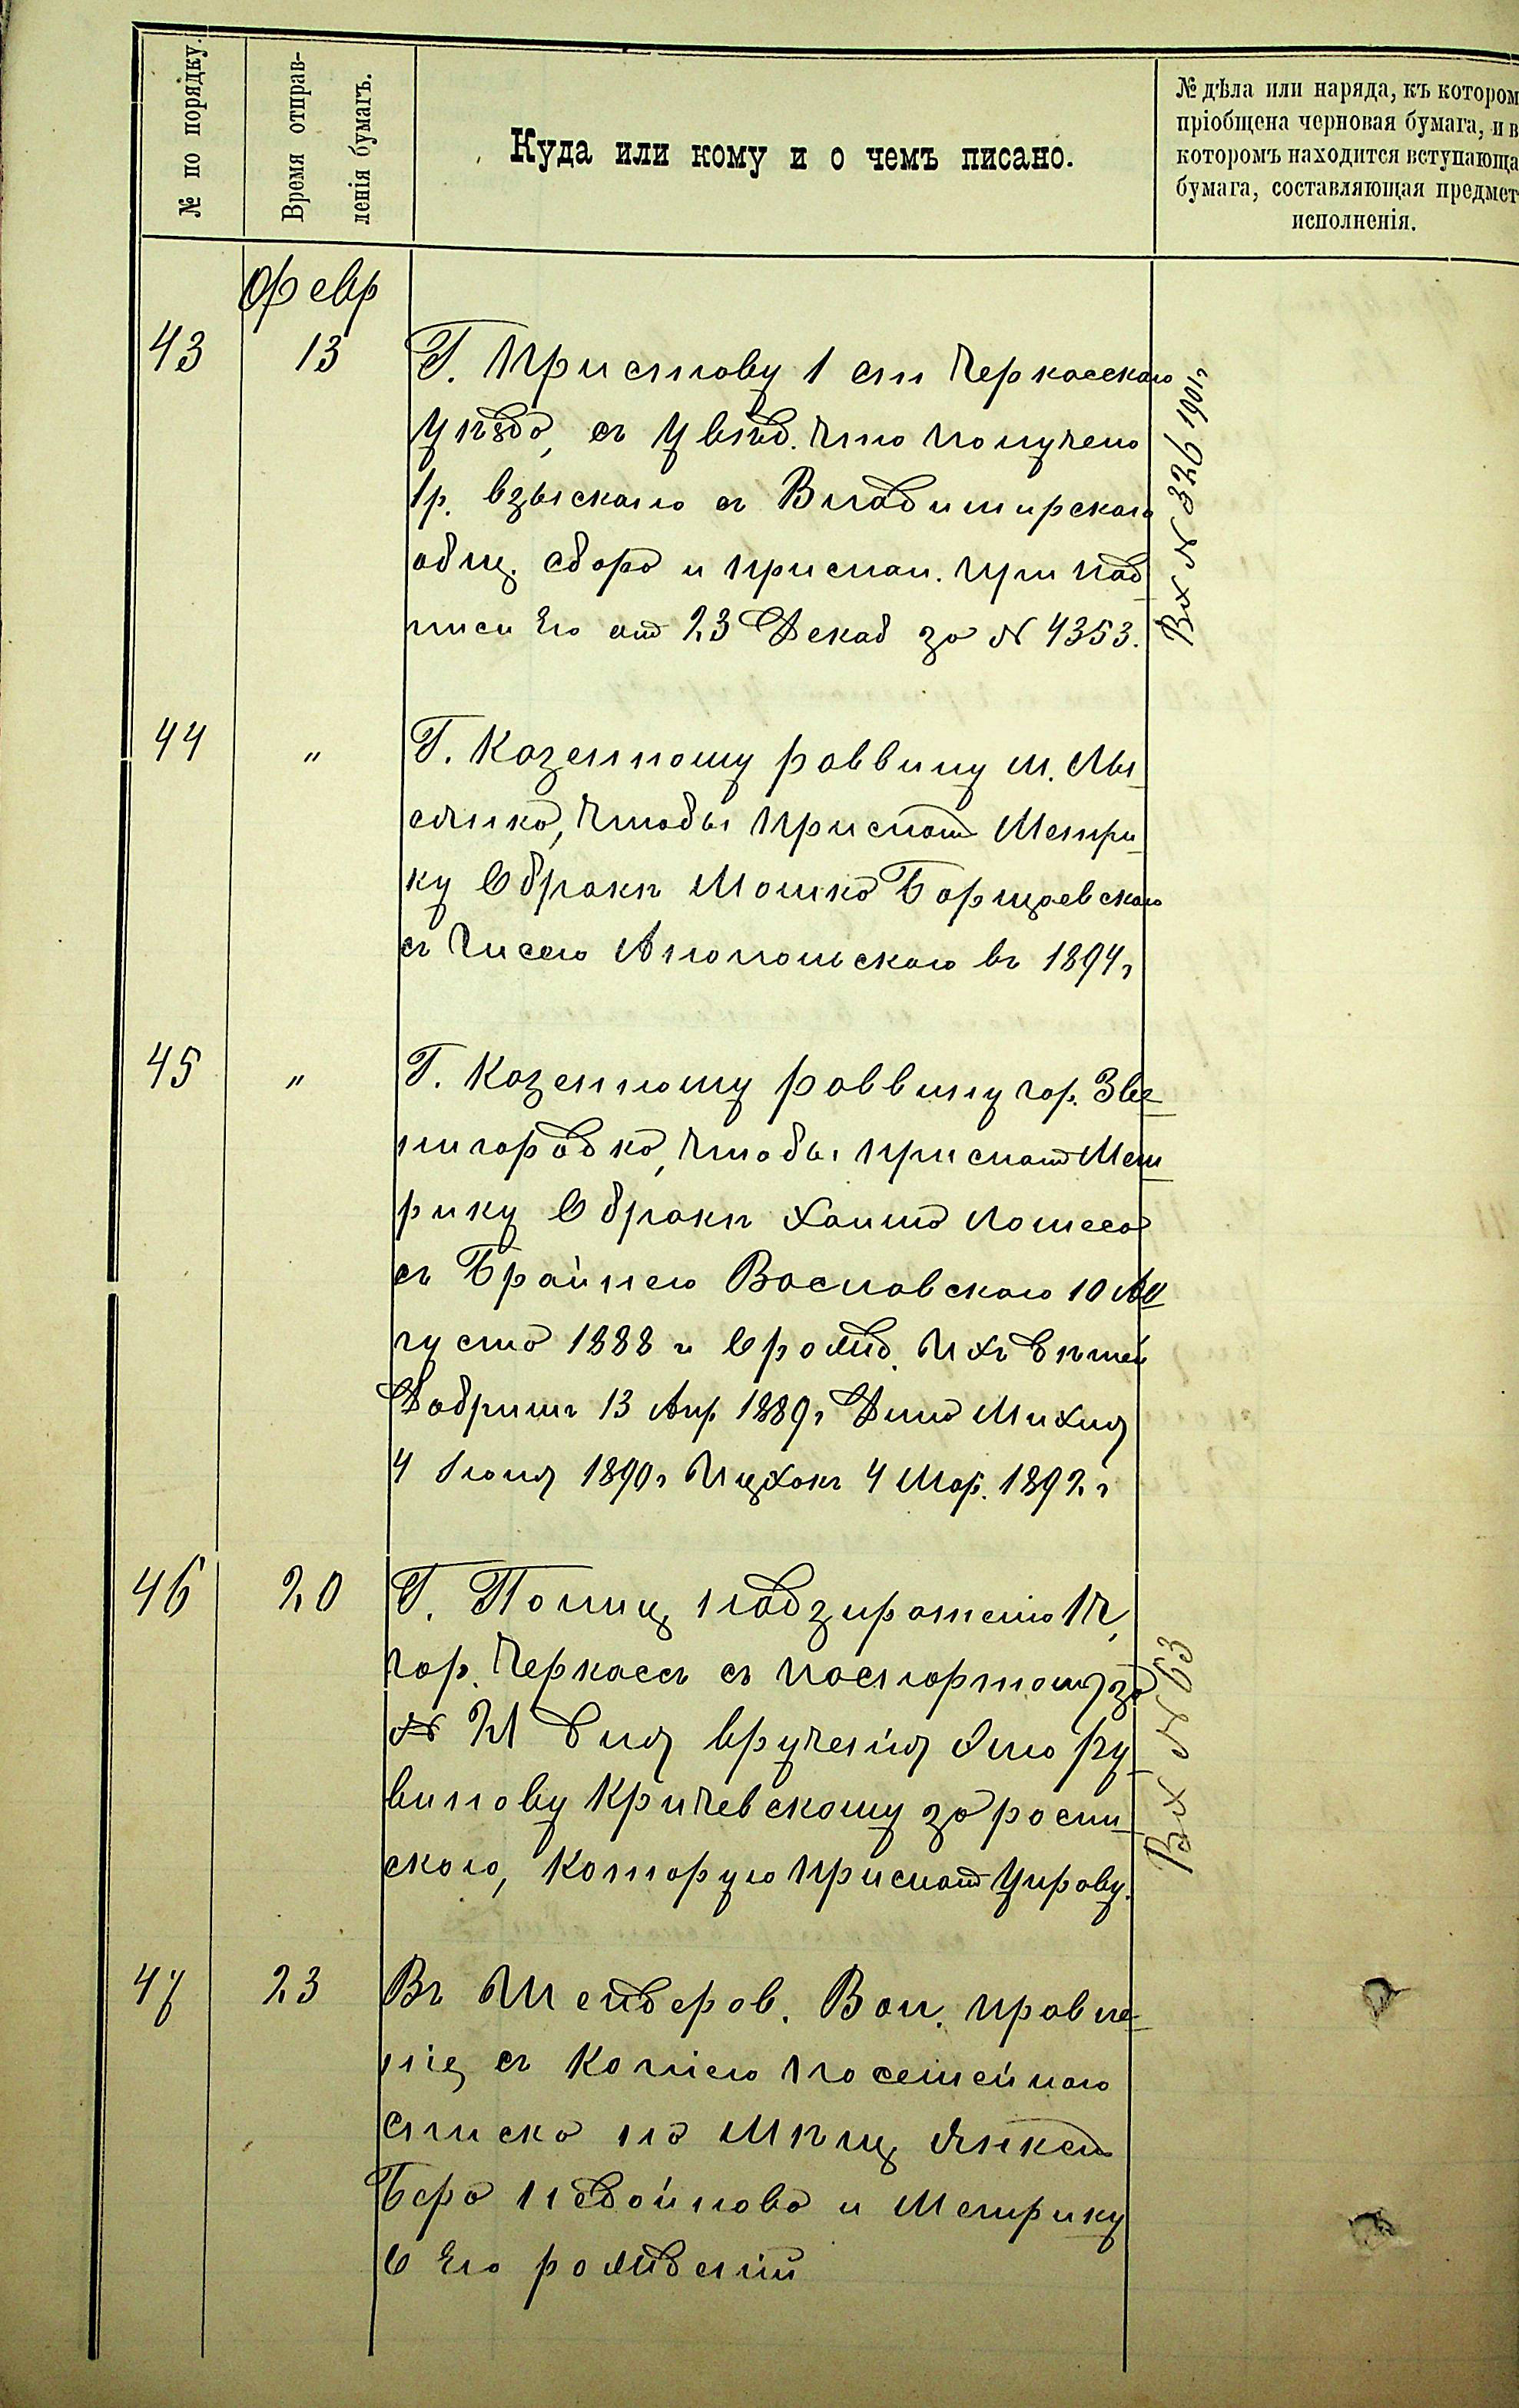 № по порядку.
Время отправ-
ленія бумагъ.
Куда или кому и о чемъ писано.
№ дѣла или наряда, къ котором
пріобщена черновая бумага, и в
которомъ находится вступающа
бумага, составляющая предмет
исполненія.
Февр
43 13 Г. Приставу 1 ст Черкасскаго
уѣзда, съ увѣд. что получено
1р. взыскано съ Владимирскаго
общ. сбора и прислан. при над
писи его от 23 Декаб за № 4353.
Вх № 326 1901г
44 " Г. Казенному раввину м. Лы
сянка, чтобы прислать Метри
ку о бракѣ Мошка Борщаевскаго
съ Чисею Анопольскаго въ 1894г
45 " Г. Казенному раввину гор. Зве
нигородка, чтобы прислать Мет
рику о бракѣ Хаима
съ Брайнею Ваславскаго 10 Ав
густа 1888 г о рожд. ихъ дѣтей
Добришъ 13 Апр 1889г Дина Михля
4 Іюня 1890г Ицхокъ 4 Мар. 1892 г
46 20 Г. Полиц надзирателю 1 ч,
гор. Черкассъ съ паспортомъ за
№ 21 для врученія Ру
винову Кричевскому за роспи
скаю, которую прислать Управу.
Вх № 63
47 23 Въ Шендеров. Вол. правле
ніе съ копіею посемейнаго
списка на мѣщ Янкел
Бера Невойнова и Метрику
о его рожденіи